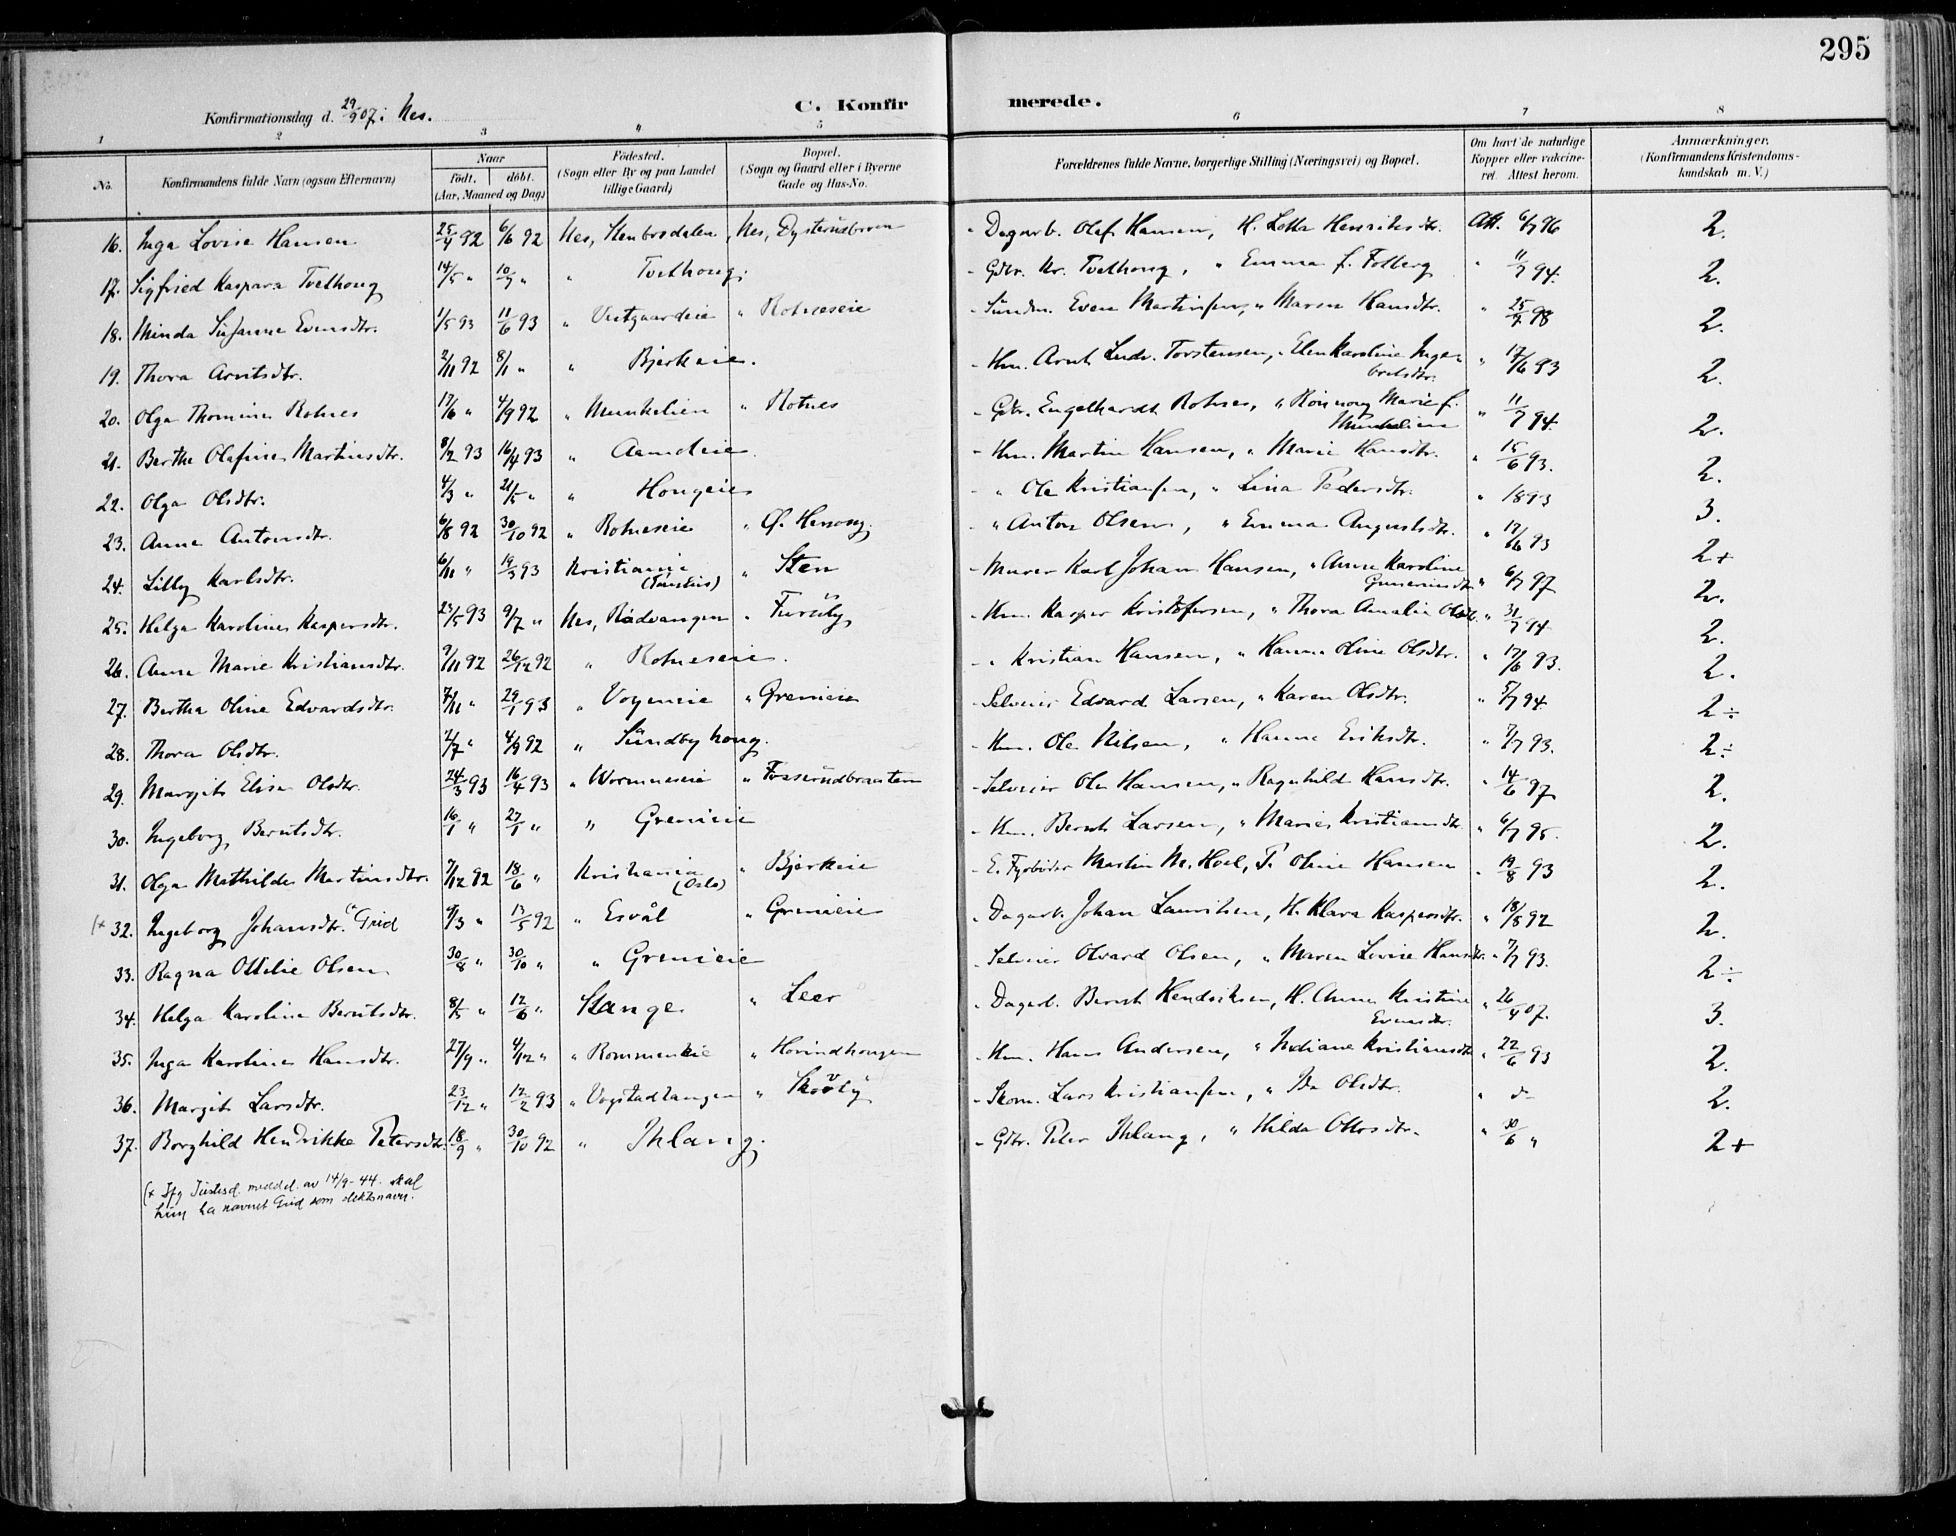 295
Konfirmationsdag d. 29/9 07 i Nes.
C. Konfirmerede.
1 2 3 " 5 6 7 8
No. Konfirmandens fulde Navn (ogsaa Efternavn) Naar Födt. döbt. (Aar, Maaned og Dag) Födested. (Sogn eller By og paa Landet tillige Gaard) Bopæl. (Sogn og Gaard eller i Byerne Gade og Hus-No. Forældrenes fulde Navne, borgerlige Stilling (Næringsvei) og Bopæl. Om havt de naturlige Kopper eller vakcineret. Attest herom. Anmærkninger. (Konfirmandens Kristendomskundskab m. V.)
16. Inga Lovise Hansen 25/4 92 6/6 92 Nes, Stenbrodalen Nes, - Dagarb. Olaf Hansen, H. Lotta Henriksdtr. Att. 6/7 96 2.
17. Sigfried Kaspara Tvethoug 14/5 " 10/7 " " Tvethoug. - Gdbr. Kr. Tvethoug, " Emma f. Folberg " 11/7 94. 2.
18. Minda Susanne Evensdtr. 1/5 93 11/6 93 " Vestgaardeie " Rotneseie - Even Martinsen, " Maren Hansdtr. " 25/7 98 2.
19. Thora Arntsdtr. 2/11 92 8/1 " " Bjerkeie. - Hm. Arnt Ludv. Torstensen, " Elen Karoline Ingebretsdtr. " 17/6 93 2.
20. Olga Thomine Rotnes 17/6 " 4/9 92 " Munkelien " Rotnes - Gdbr. Engelhardt Rotnes, " Rønnaug Marie f. Munkelien " 11/7 94. 2.
21. Berthe Olafine Martinsdtr. 8/2 93 16/4 93 " Aamoteie. - Hm. Martin Hansen, " Marie Hansdtr. " 15/6 93. 2.
22. Olga Olsdtr. 4/3 " 21/5 " " Hougeie - " Ole Kristiansen, " Lina Pedersdtr. " 1893 3.
23. Anne Antonsdtr. 6/8 92 30/10 92 " Rotneseie " - " Anton Olsen, " Emma Augustsdtr. " 17/6 93 2+
24. Lilly Karlsdtr. 6/11 " 19/3 93 Kristiania " Sten - Murer Karl Johan Hansen, " Anne Karoline Guneriusdtr " 6/7 97 2.
25. Helga Karoline Kaspersdtr. 23/5 93 9/7 " Nes, Rådvangen " Furuly - Hm. Kasper Kristofersen, " Thora Amalie Olsdtr. " 31/7 94 2.
26. Anne Marie Kristiansdtr. 9/11 92 26/12 92 " Rotneseie. - " Kristian Hansen, " Hanna Oline Olsdtr. " 17/6 93. 2.
27. Bertha Oline Edvardsdtr. 7/11 " 29/1 93 " Voyeneie " Grenieie - Selveier Edvard Larsen, " Karen Olsdtr. " 5/7 94. 2÷
28. Thora Olsdtr. 2/7 " 4/9 92 " Sundbyhoug. - Hm. Ole Nilsen, " Hanna Eriksdtr. " 7/7 93. 2÷
29. Margit Elise Olsdtr. 24/3 93 16/4 93 " Wormneseie " Fosserudbraaten - Selveier Ole Hansen, " Ragnhild Hansdtr. " 14/6 97 2.
30. Ingeborg Berntsdtr. 16/1 " 27/1 " " Grenieie - Hm. Bernt Larsen, " Marie Kristiansdtr. " 6/7 95. 2.
31. Olga Mathilde Martinsdtr. 7/12 92 18/6 " Kristiania (Oslo) " Bjerkeie - E. Fyrbøder Martin M. Hoel, P. Oline Hansen " 19/8 93 2.
(+ 32. Ingeborg Johansdtr. (+ Grid 9/3 " 13/5 92 " Esvål " Grenieie - Dagarb. Johan Lauritsen, H. Klara Kaspersdtr. " 18/8 92 2.
33. Ragna Ottilie Olsen 30/8 " 30/10 " " Grenieie - Selveier Olvard Olsen, " Maren Lovise Hansdtr. " 7/7 93. 2÷
34. Helga Karoline Berntsdtr. 8/5 " 12/6 " Stange " Leer - Dagarb. Bernt Hendriksen, H. Anne Kristine Evensdtr. " 26/4 07. 3.
35. Inga Karoline Hansdtr. 27/9 " 4/12 " " Rommeneie " Horindhougen - Hm. Hans Andersen, " Indiane Kristiansdtr " 22/6 93 2.
36. Margit Larsdtr. 23/12 " 12/2 93 " Vogstadtangen " Skovly - Skom. Lars Kristiansen, " Ida Olsdtr. " do 2.
37. Borghild Hendrikke Petersdtr. 18/9 " 30/10 92 " Ihlang. - Gdbr. Peter Ihlang, " Hilda Ottosdtr. " 30/6 " 2+
(+ Ifg Justisd. meddel. av 14/9-44 skal
hun ha navnet Grid som slektsnavn.